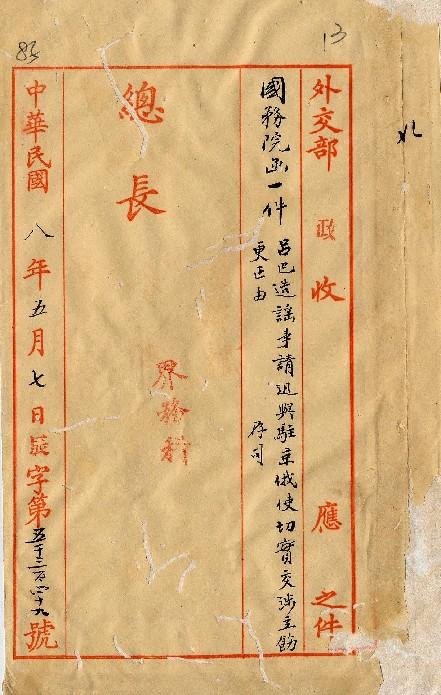 13
外交部 政 收 應 之件
國務院函一件
呂巴造謠事請迅與駐京俄使切實交涉並飭
更正由
存司
總長
界務科
中華民國 八 年 五 月 七 日 辰 字第 五千三百四十九 號